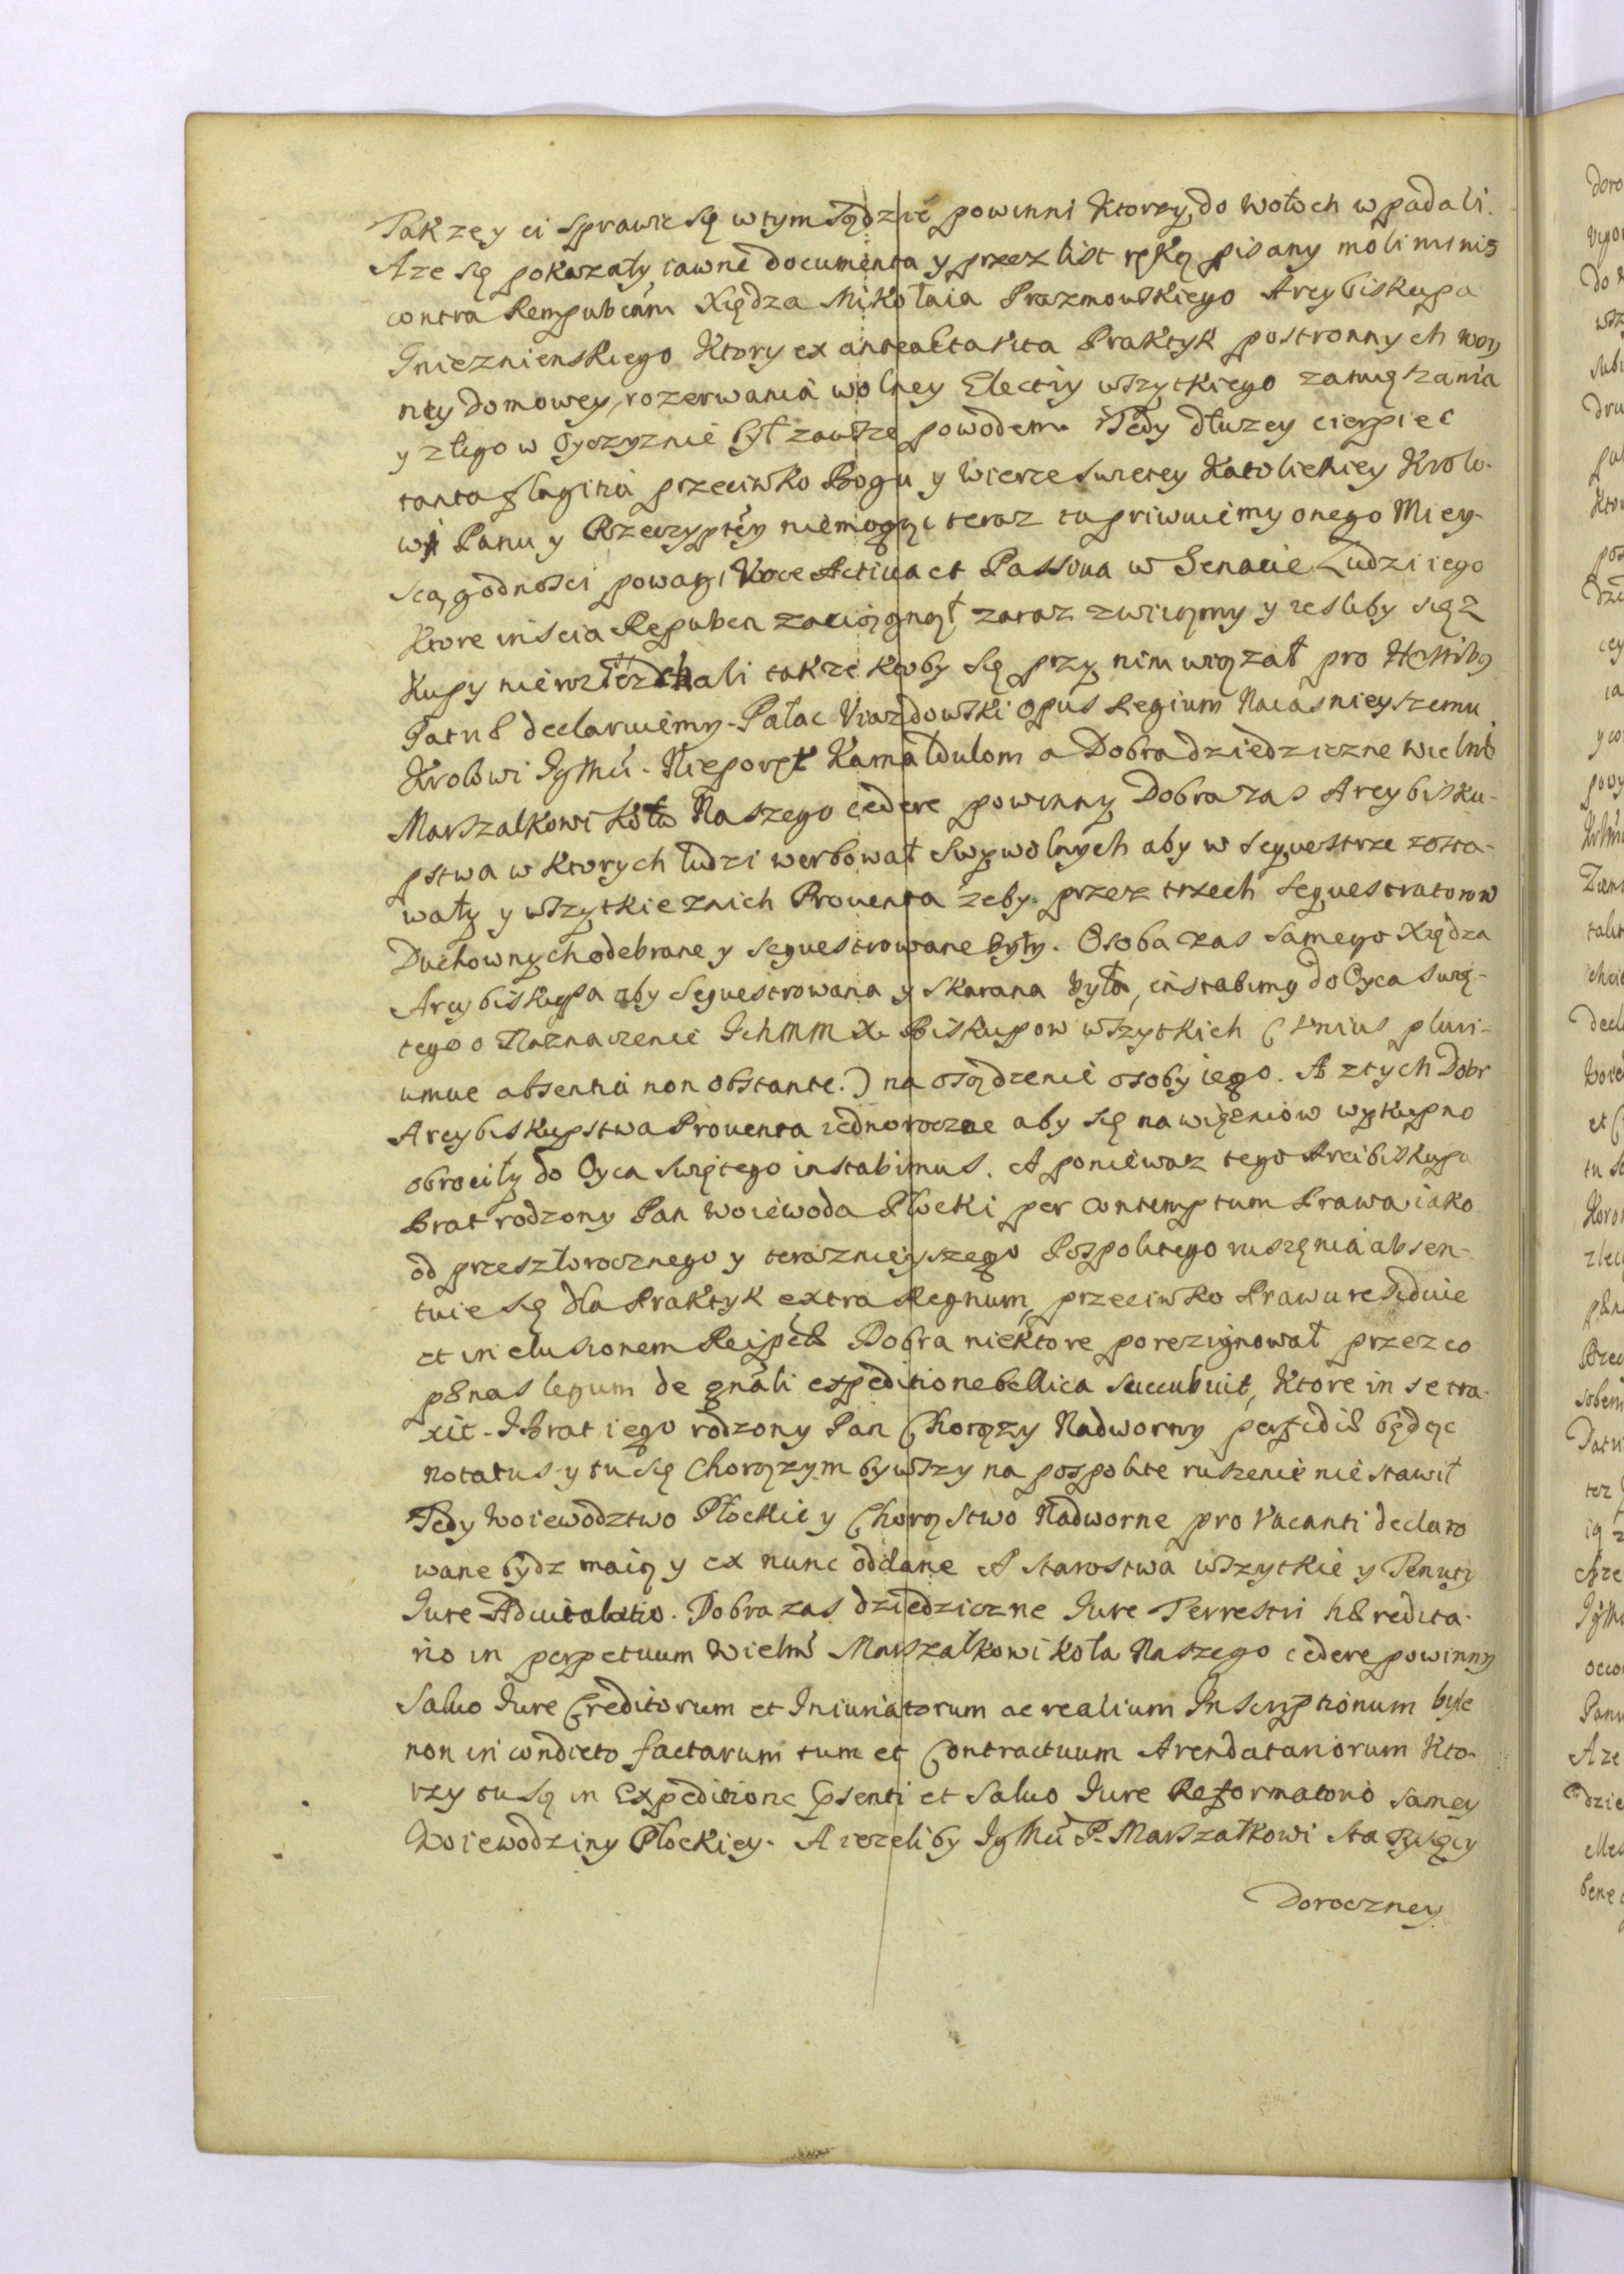 Takze y ci sprawic się w tym sądzie powinni Ktorzy do Wołoch wpadali.
A ze się pokazały iawne documenta y przez list ręką pisany moliminis
contra Rempubcam Xiędza Mikołaia Prazmowskiego Arcybiskupa
Gnieznienskiego Ktory ex anteacta vita Praktyk postronnych woy
ney domowey, rozerwania wolney Electiy wszytkiego zamięszania
y złego w Oyczyznie był zawsze powodem. Tedy dłuzey cierpiec
tanta flagitia przeciwko Bogu y Wierze swietey Katolickiey Krolo-
wi Panu y Rzeczyptey niemogąc teraz tu priwuiemy onego Miey-
sca, godnosci powagi Voce Activa et Passiva w Senacie Ludzi iego
Ktore in scia Repubca zaciągnął, zaraz zwiiąmy y iesliby się z
Kupy nie rozieżdchali takze ktoby się przy nim wiązał pro Hostibg
Patriæ declaruiemy. Pałac Viazdowski opus Regium Naiasnieyszemu
Krolowi Jgmci. Nieporęt Kamaldulom a Dobra dziedziczne Wielm
Marszalkowi Koła Naszego cedere powinny Dobra zas Arcybisku-
pstwa w Ktorych ludzi werbował swywolnych aby w seqvestrze zosta-
wały y wszytkie z nich Proventa żeby przez trzech seqvestratorow
Duchownych odebrane y seqvestrowane były. Osoba zas samego Xiędza
Arcybiskupa aby seqvestrowana y skarana była, instabimg do Oyca swię-
tego o Naznaczenie Ichmm X. Biskupow wszytkich (unius pluri-
umve absentia non obstante.) na osądzenie osoby iego. A z tych Dobr
Arcybiskupstwa Proventa iednoroczne aby się na więzniow wykupno
obrociły do Oyca swiętego instabimus. A poniewaz tego Arcibiskupa
Brat rodzony Pan Woiewoda Płocki per contemptum Prawa iako
od przeszłorocznego y teraznieyszego Pospolitego ruszenia absen-
tuie się dla Praktyk extra Regnum, przeciwko Prawu residuie
et in elusionem Reipcæ Dobra niektore porezignował przez co
pænas legum de gnali expeditione bellica succubuit, Ktore in se tra-
xit. I Brat iego rodzony Pan Chorąży Nadworny perfidiæ będąc
notatus y tu się Chorązym bywszy na pospolite ruszenie nie stawił
Tedy Woiewodztwo Płockie y Chorąstwo Nadworne pro Vacanti declaro
wane bydz maią y ex nunc oddane A Starostwa wszytkie y Tenuty
Jure Advitalitio. Dobra zas dziedziczne Jure Terrestri hæredita-
rio in perpetuum Wielm Marszałkowi Koła Naszego cedere powinny
Salvo Jure Creditorum et Iniuriatorum ac realium Inscriptionum byle
non in condicto factarum tum et Contractuum Arendatariorum Kto-
rzy tu są in Expeditione psenti et salvo Jure Reformatorio samey
Woiewodziny Płockiey. A iezeliby Jgmci P. Marszałkowi sta Tysięcy
Doroczney